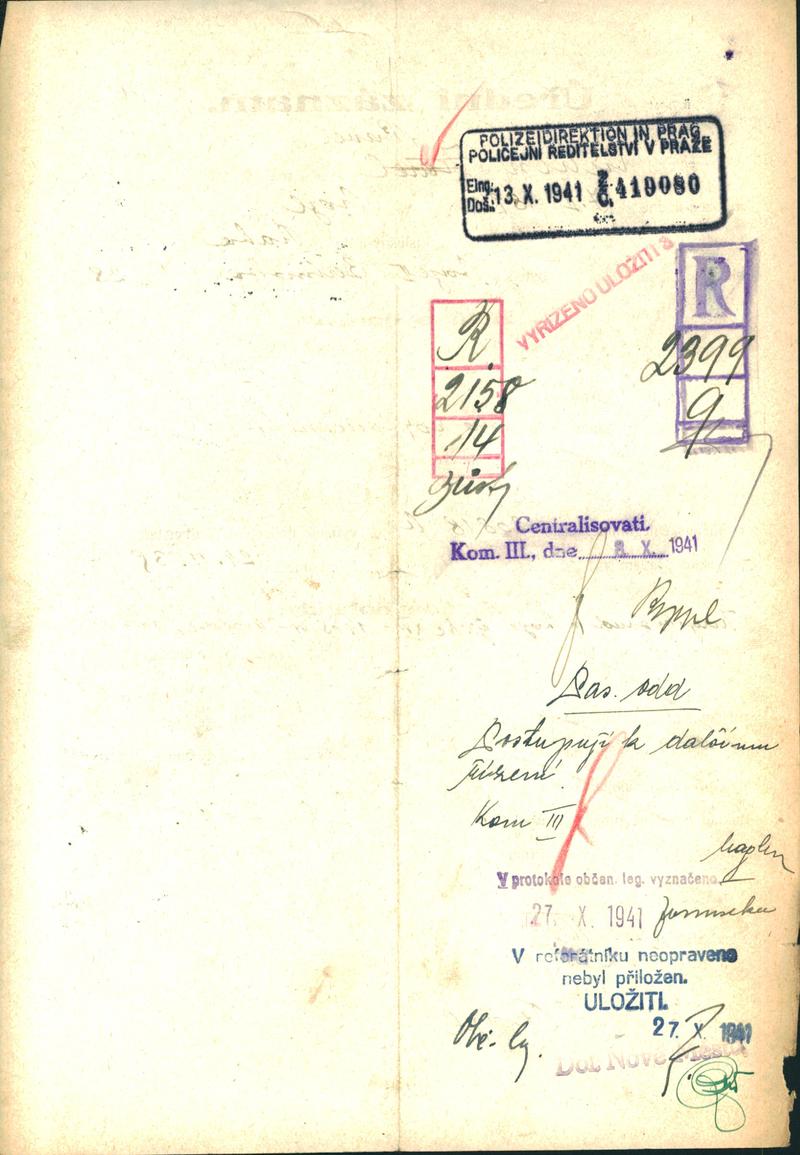 POLIZEIDIREKTION IN PRAG
POLICEJNÍ ŘEDITELSTVÍ V PRAZE
Eing.
Doš. 13. X. 1941 Z. Č. 419080
VYŘÍZENO ULOŽITI
R
2399
9
R.
2158
14
Centralisovati.
Kom. III., dne 8. X. 1941
Pas. odd
Postupuji k dalšímu
řízení.
Kom III
V protokole občan. leg. vyznačeno.
27. X. 1941
V referátníku neopraveno
nebyl přiložen.
ULOŽITI.
27. X. 1941
Obč. leg.
Dof. Nové Město